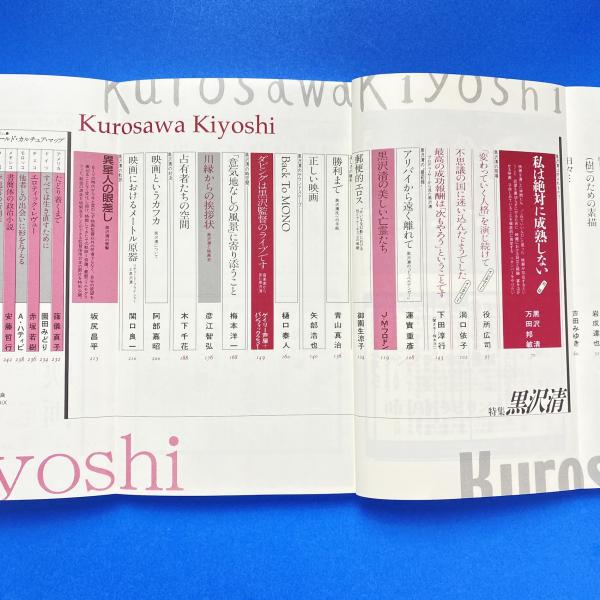 Kurosawa Kiyoshi
Kurosawa Kiyoshi
〈樹〉のための素描
日々…
岩成達也
芦田みゆき
特集 黒沢清
私は絶対に成熟しない
黒沢 清
万田邦敏
70
“変わっていく人格”を演じ続けて
役所広司
97
不思議の国に迷い込んだようでした
洞口依子
最高の成功報酬は「次もやろう」ということです
下田淳行
アリバイから遠く離れて
蓮實重彦
黒沢清の美しい亡霊たち
J・M・フロドン
119
郵便的エロス
御園生涼子
124
勝利まで
青山真治
138
正しい映画
矢部浩也
140
Back To MONO
樋口泰人
ダビングは黒沢監督のライブです
ゲイリー芦屋+
149
「意気地なしの風景」に寄り添うこと
梅本洋一
168
川縁からの挨拶状
彦江智弘
176
占有者たちの空間
木下千花
188
映画というカフカ
阿部嘉昭
200
映画におけるメートル原器
関口良一
210
異星人の眼差し
坂尻昌平
223
ールド・カルチュア・マップ
アメリカ
たどり着くまで
篠儀直子
232
すべては生き直すために
園田みどり
234
ドイツ
エロティック・レヴュー
赤坂若樹
236
モロッコ
他者との出会いに形を与える
A・ハティビ
238
メキシコ
書簡体の政治小説
安藤哲行
242
yoshi
Kurosaw